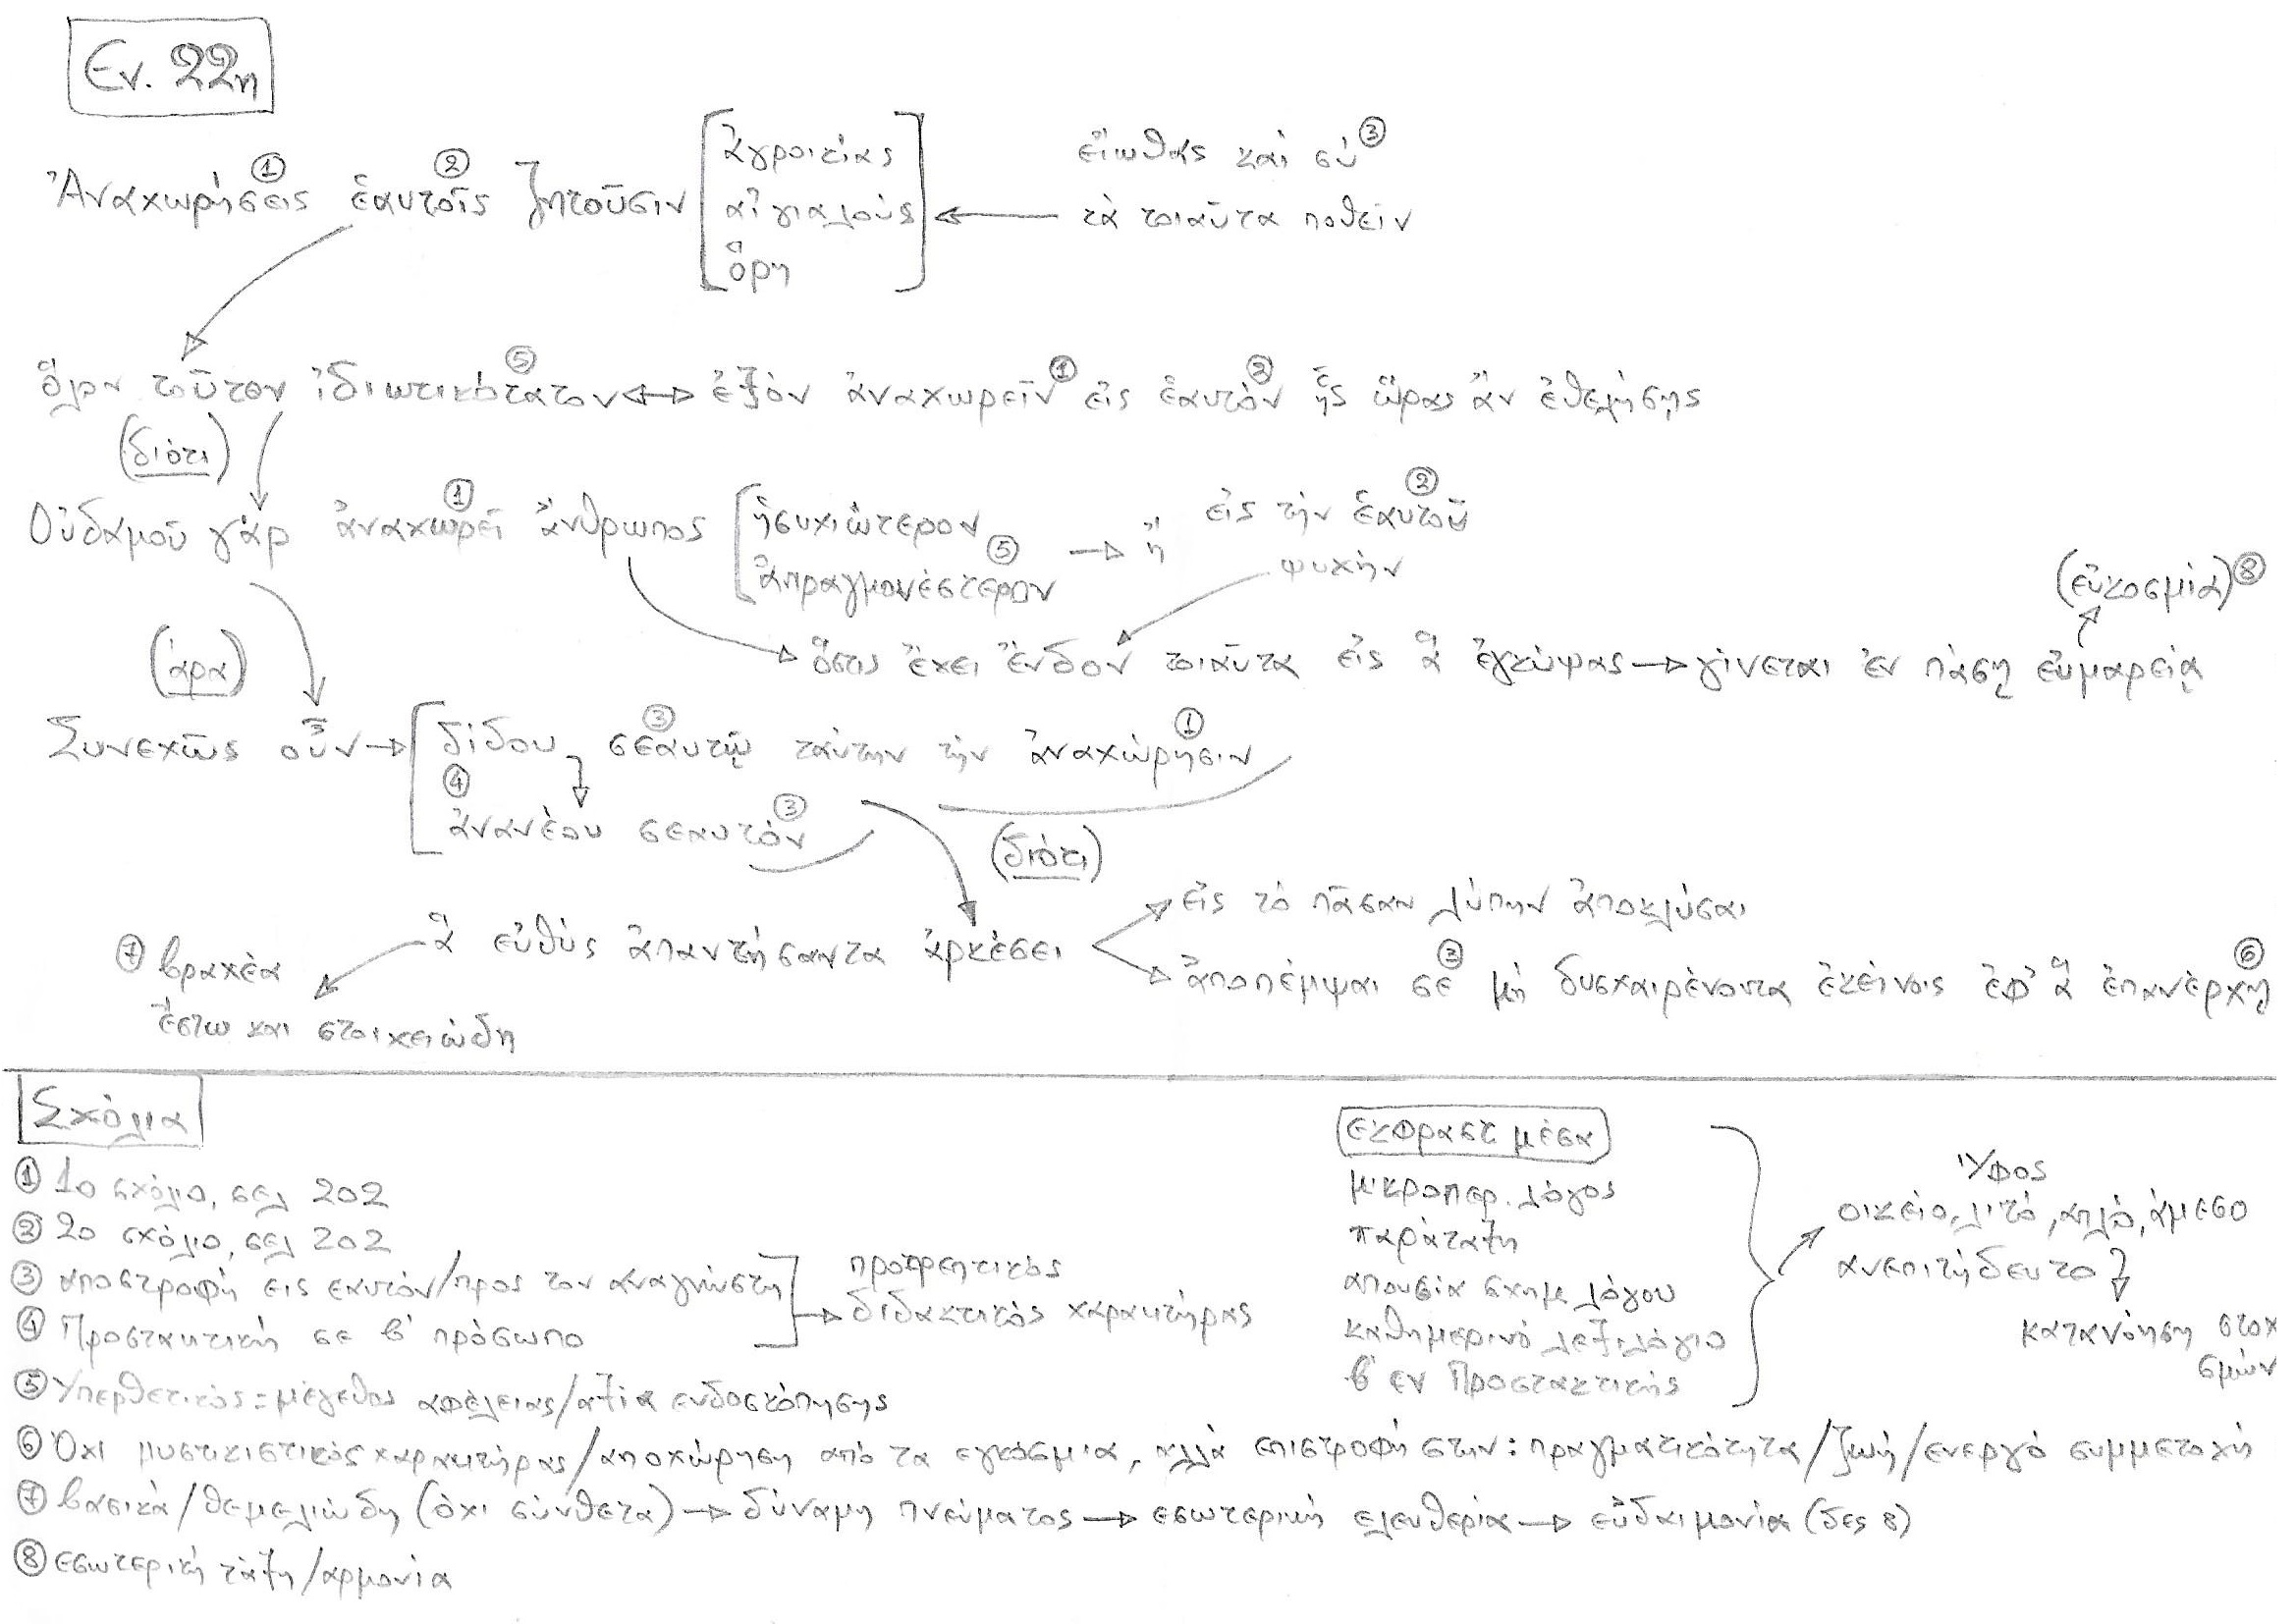 Εν. 22η
Ἀναχωρήσεις ① ἑαυτοῖς ② ζητοῦσιν [ἀγροικίας
αἰγιαλούς
ὄρη] ← εἴωθας καὶ σύ ③
τὰ τοιαῦτα ποθεῖν
ὅλον τοῦτον ἰδιωτικότατον ⑤ ↔ ἐξὸν ἀναχωρεῖν ① εἰς ἑαυτόν ② ἧς ὥρας ἄν ἐθελήσῃς
(διότι)
Οὐδαμοῦ γάρ ἀναχωρεῖ ① ἄνθρωπος [ἡσυχιώτερον
ἀπραγμονέστερον ⑤ → ἤ εἰς τὴν ἑαυτοῦ ②
ψυχὴν
(εὐκοσμία) ⑧
ὅστις ἔχει ἔνδον τοιαῦτα εἰς ἅ ἐγκύψας → γίνεται ἐν πάσῃ εὐμαρείᾳ
(άρα)
Συνεχῶς οὖν → [δίδου σεαυτῷ ③ ταύτην τὴν ἀναχώρησιν ①
④
ἀνανέου σεαυτόν ③
(διότι)
ἅ εὐθύς ἀπαντήσαντα ἀρκέσει
εἰς τὸ πᾶσαν λύπην ἀποκλύσαι
ἀποπέμψαι σε ③ μή δυσχαιρένοντα ἐκείνοις ἐφ' ἅ ἐπανέρχῃ ⑥
⑦ βραχέα
ἔστω και στοιχειώδη
Σχόλια
① 1ο σχόλιο, σελ 202
② 2ο σχόλιο, σελ 202
③ αποστροφή εις εαυτόν/προς τον αναγνώστη
④ Προστακτική σε β' πρόσωπο
προτρεπτικός
διδακτικός χαρακτήρας
⑤ Υπερθετικός = μέγεθος αφέλειας/αξία ενδοσκόπησης
⑥ Όχι μυστικιστικός χαρακτήρας/αποχώρηση από τα εγκόσμια, αλλά επιστροφή στην: πραγματικότητα/ζωή/ενεργό συμμετοχή
⑦ βασικά/θεμελιώδη (όχι σύνθετα) → δύναμη πνεύματος → εσωτερική ελευθερία → εὐδαιμονία (δες 8)
⑧ εσωτερική τάξη/αρμονία
εκφραστ μέσα
μικροπερ. λόγος
παράταξη
απουσία σχημ λόγου
καθημερινό λεξιλόγιο
β' εν Προστακτικής
Ύφος
οικείο, λιτό, απλό, άμεσο
ανεπιτήδευτο
κατανόηση στοχ
σμών